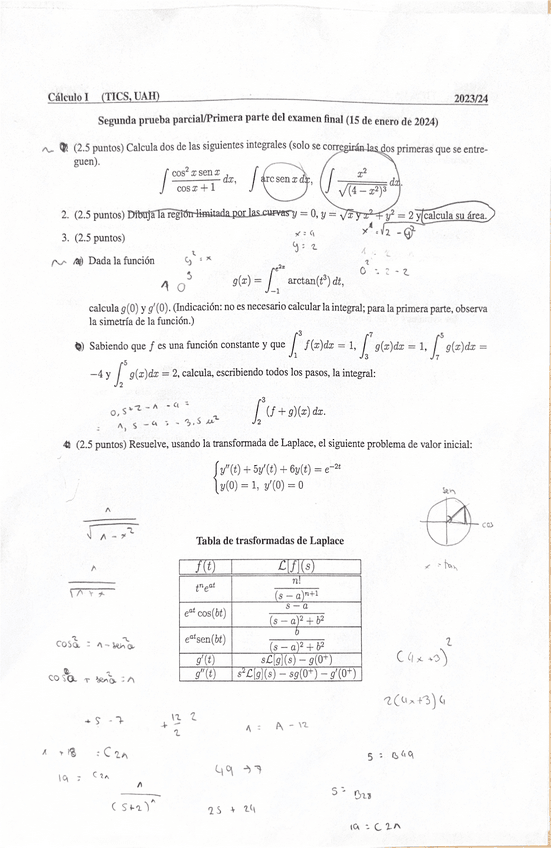 Cálculo I (TICS, UAH) 2023/24
Segunda prueba parcial/Primera parte del examen final (15 de enero de 2024)
1. (2.5 puntos) Calcula dos de las siguientes integrales (solo se corregirán las dos primeras que se entre-
guen).
∫ cos² x sen x / (cos x + 1) dx, ∫ arc sen x dx, ∫ x² / √((4 − x²)³) dx.
2. (2.5 puntos) Dibuja la región limitada por las curvas y = 0, y = √x y x² + y² = 2 y calcula su área.
3. (2.5 puntos)
a) Dada la función
g(x) = ∫_{-1}^{e^{2x}} arctan(t³) dt,
calcula g(0) y g′(0). (Indicación: no es necesario calcular la integral; para la primera parte, observa
la simetría de la función.)
b) Sabiendo que f es una función constante y que ∫_1^3 f(x)dx = 1, ∫_3^7 g(x)dx = 1, ∫_7^5 g(x)dx =
−4 y ∫_2^5 g(x)dx = 2, calcula, escribiendo todos los pasos, la integral:
∫_2^3 (f + g)(x) dx.
0,5+2-1-4=
= 1,5-4 = -3,5 u²
4. (2.5 puntos) Resuelve, usando la transformada de Laplace, el siguiente problema de valor inicial:
y″(t) + 5y′(t) + 6y(t) = e^{−2t}
y(0) = 1, y′(0) = 0
sen
cos
1 / √(1-x²)
Tabla de trasformadas de Laplace
f(t) L[f](s)
tⁿe^{at} n! / (s − a)^{n+1}
e^{at} cos(bt) (s − a) / ((s − a)² + b²)
e^{at}sen(bt) b / ((s − a)² + b²)
g′(t) sL[g](s) − g(0⁺)
g″(t) s²L[g](s) − sg(0⁺) − g′(0⁺)
x = tan
cos²a = 1-sen²a
cos²a + sen²a = 1
(4x+3)²
2(4x+3)4
+5-7
1 = A-12
1+18 = C21
19 = C21
49 → 7
5 = B49
1 / (s+2)
25 + 24
5 = B28
19 = C21